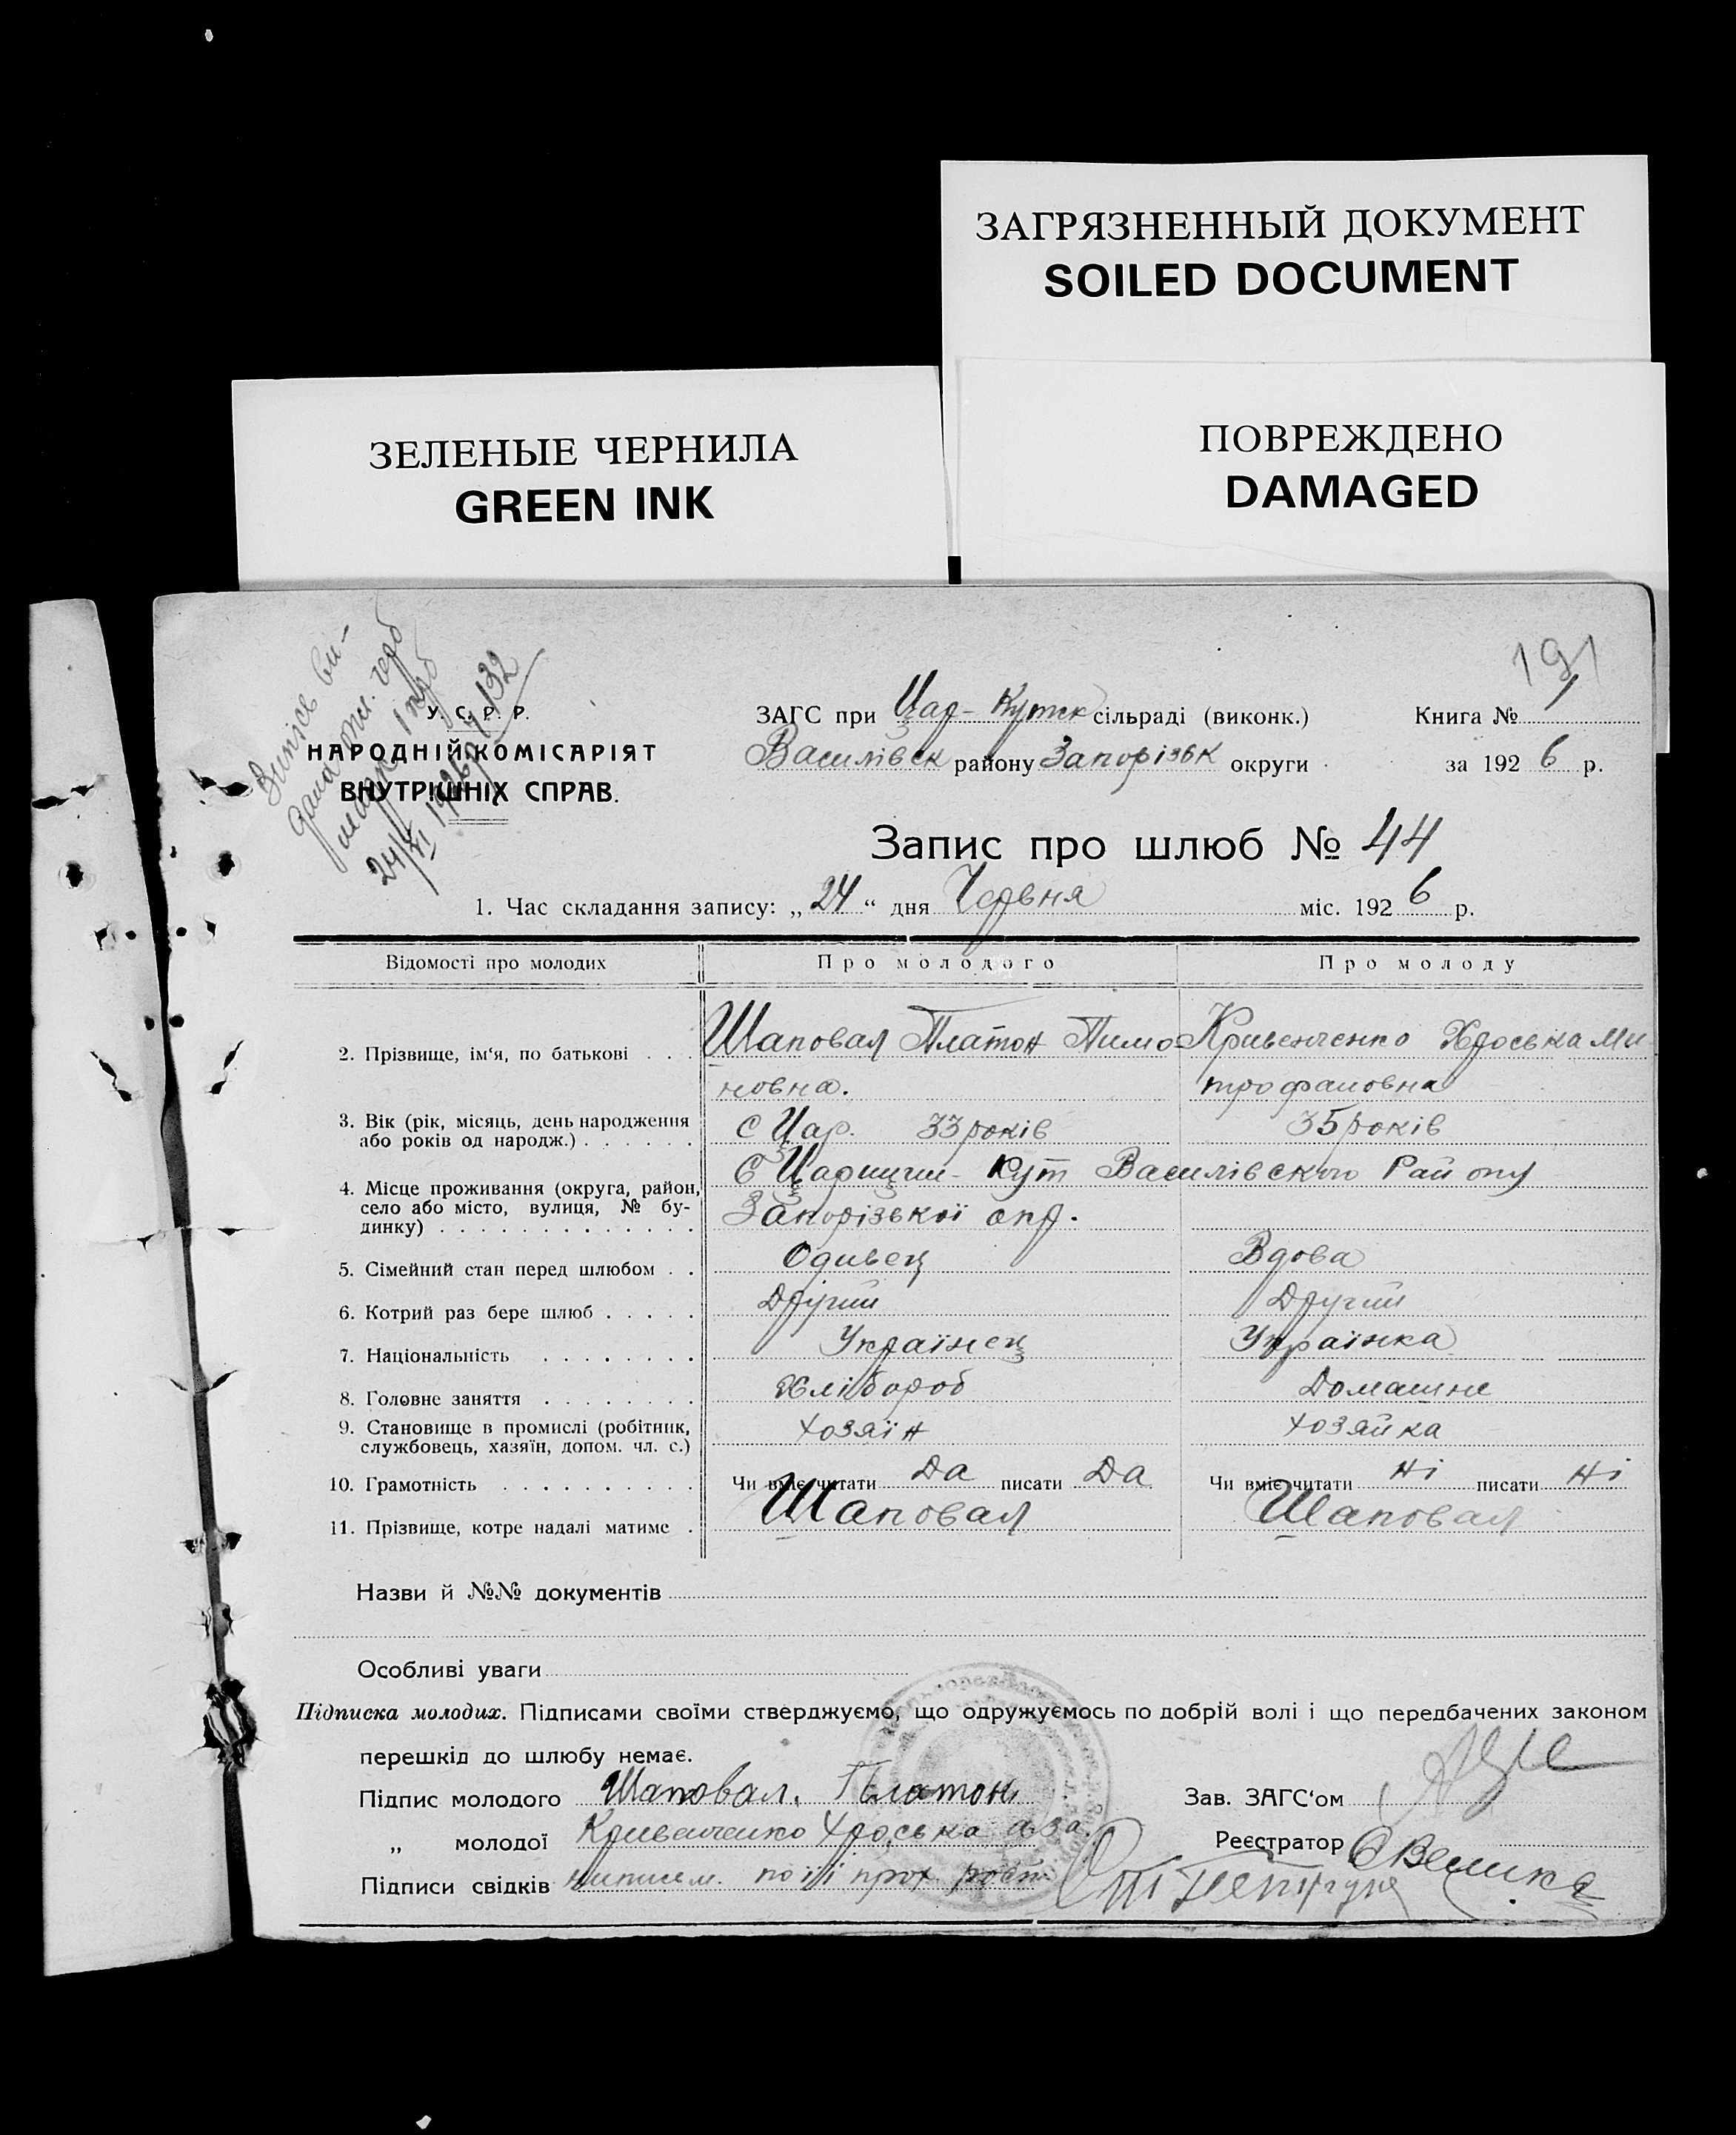 ЗАГРЯЗНЕННЫЙ ДОКУМЕНТ
SOILED DOCUMENT
ЗЕЛЕНЫЕ ЧЕРНИЛА
GREEN INK
ПОВРЕЖДЕНО
DAMAGED
191
Виписв ви-
дана
24/VI 1926 р № 132
У. С. Р. Р.
НАРОДНІЙ КОМІСАРІЯТ
ВНУТРІШНІХ СПРАВ.
ЗАГС при Цар-Кутск сільраді (виконк.) Книга № 1
Василівск району Запорізьк округи за 1926 р.
Запис про шлюб № 44
1. Час складання запису: „24“ дня Червня міс. 1926 р.
Відомості про молодих Про молодого Про молоду
2. Прізвище, ім‘я, по батькові . . . Шаповал Платон Тимо Кривенченко Хроська Ми
новна. трофановна
3. Вік (рік, місяць, день народження
або років од народж.) . . . . . . с Цар. 33 років 35 років
С Царицин-Кут Василівского Району
4. Місце проживання (округа, район,
село або місто, вулиця, № бу-
динку) . . . . . . . . . . . . . Запорізької окр.
5. Сімейний стан перед шлюбом . . Одивец Вдова
6. Котрий раз бере шлюб . . . . . Другий Другий
7. Національність . . . . . . . . Українец Українка
8. Головне заняття . . . . . . . . Хлібороб Домашне
9. Становище в промислі (робітник,
службовець, хазяїн, допом. чл. с.) хозяїн хозяйка
10. Грамотність . . . . . . . . . . Чи вміє читати Да писати Да Чи вміє читати Ні писати Ні
11. Прізвище, котре надалі матиме . Шаповал Шаповал
Назви й №№ документів
Особливі уваги
Підписка молодих. Підписами своїми стверджуємо, що одружуємось по добрій волі і що передбачених законом
перешкід до шлюбу немає.
Підпис молодого Шаповал. Платон Зав. ЗАГС‘ом
„ молодої Кривенченко Хроська а за Реєстратор
Підписи свідків по її прох